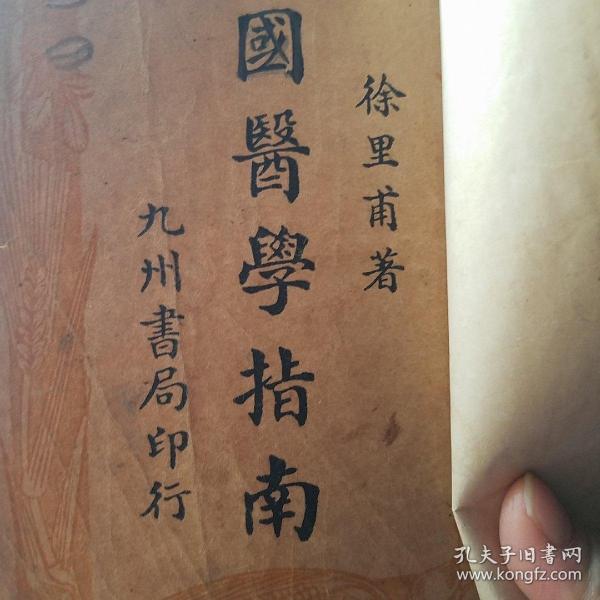 徐里甫著
國醫學指南
九州書局印行
孔夫子旧书网
www.kongfz.com